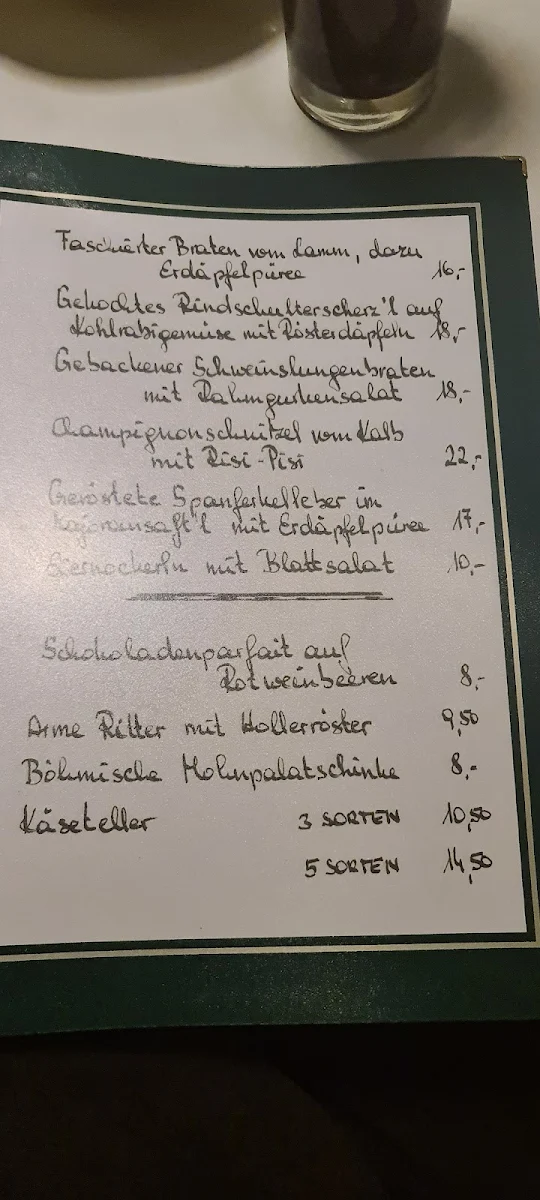 Faschierter Braten vom Lamm, dazu
Erdäpfelpüree 16,-
Gekochtes Rindschulterscherz'l auf
Kohlrabigemüse mit Rösterdäpfeln 18,-
Gebackener Schweinslungenbraten
mit Rahmgurkensalat 18,-
Champignonschnitzel vom Kalb
mit Risi-Pisi 22,-
Geröstete Spanferkelleber im
Majoransaft'l mit Erdäpfelpüree 17,-
Eiernockerln mit Blattsalat 10,-
Schokoladenparfait auf
Rotweinbeeren 8,-
Arme Ritter mit Hollerröster 9,50
Böhmische Mohnpalatschinke 8,-
Käseteller 3 SORTEN 10,50
5 SORTEN 14,50